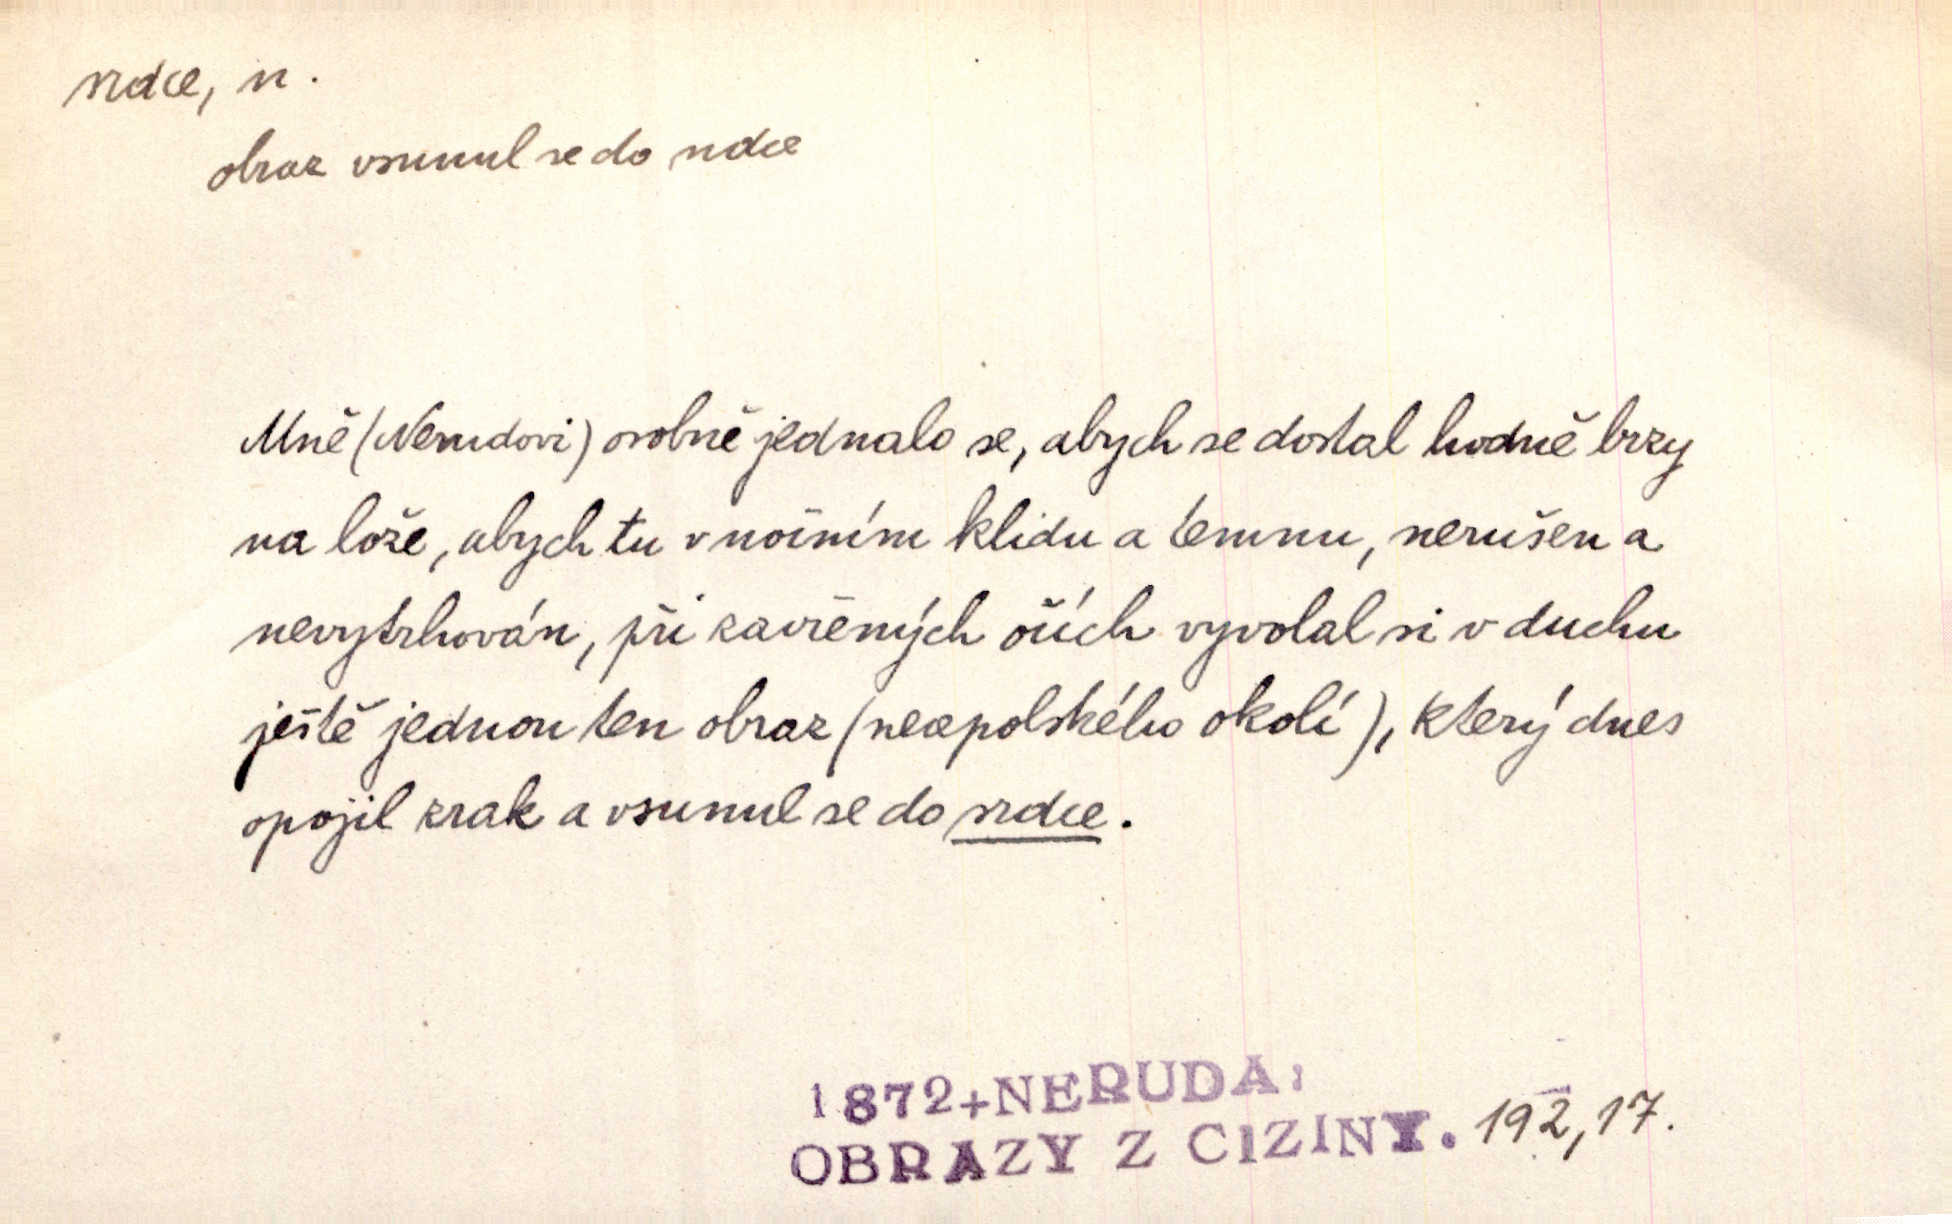 srdce, n.
obraz vsunul se do srdce
Mně (Nerudovi) osobně jednalo se, abych se dostal hodně brzy
na lože, abych tu v nočním klidu a temnu, nerušen a
nevytrhován, při zavřených očích vyvolal si v duchu
ještě jednou ten obraz (neapolského okolí), který dnes
opojil zrak a vsunul se do srdce.
1872+NERUDA:
OBRAZY Z CIZINY. 192,17.